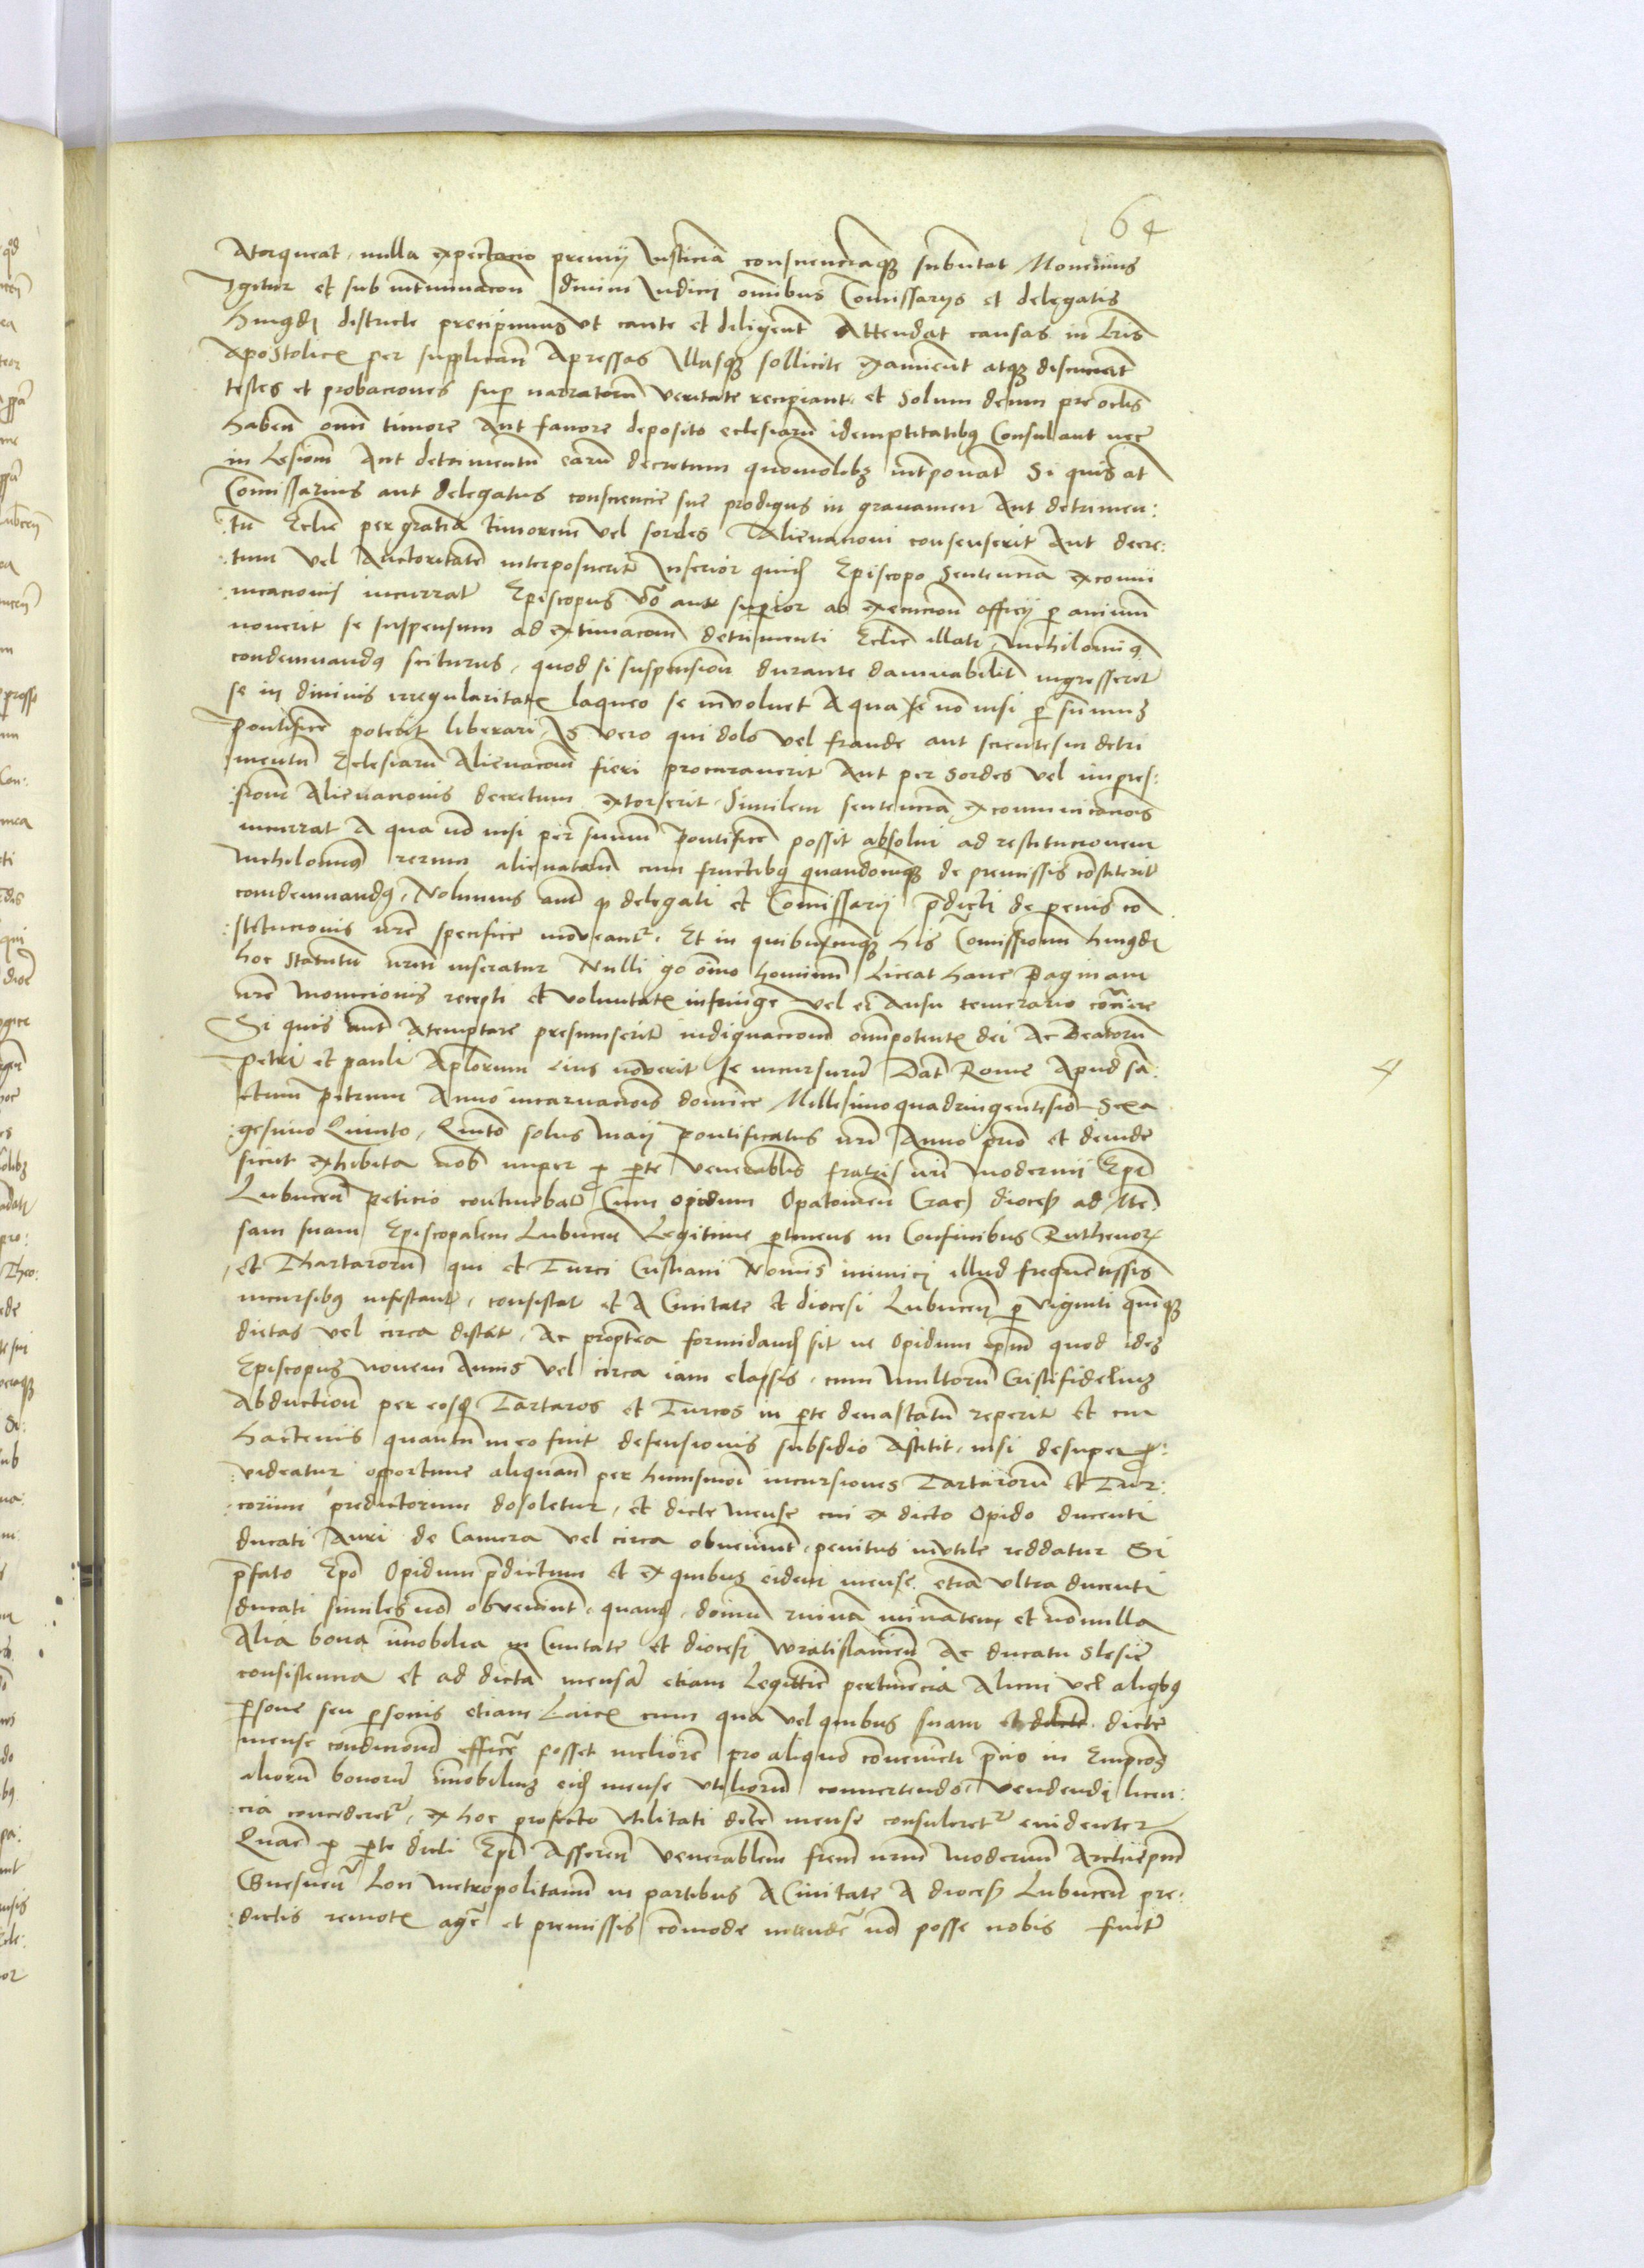 64
Atorqueat, nulla expectacio premij Iusticiā conscienciaqꝫ subvertat Monemus
Igitur et sub intiminacōn divini Iudicij omnibus Comissarijs et delegatis
hmōdi districte precipimus ut caute et diligent Attendāt causas in lrīs
Apostolicꝭ per supplicanī Apressas Illasqꝫ sollicite examinent atqꝫ discuciāt
testes et probaciones sup narratorū veritate recipiant, et solum deum pre oclīs
habent omī timore Aut favore deposito ecclesiarū idemptitatibꝫ Consulant nec
in lesionē Aut detrimentū earū decretum quomolibꝫ intponāt Si quis āt
Comissarius aut delegatus consciencie sue prodigus in gravamen Aut detrimen:
:tū Ecclīe per gratiā timorem vel sordes Alienacioni consenserit Aut decre:
:tum vel Auctoritatē interposuerit Inferior quid Episcopo sentenciā excomū
nicacionis incurrat Episcopus vō aut supior ab execucionē officij p annum
noverit se suspensum ad extimacōnē detrimenti Ecclīe illati, nichilominꝰ
condemnandꝰ sciturus, quod si suspensionē durante damnabilit ingesserit
se in divinis irregularitatꝭ laqueo se īnvolvet A qua nō nisi p sūmuꝫ
Pontificē poterit liberari, Is vero qui dolo vel fraude aut scientes in detri
mentū Ecclesiarū Alienacōnē fieri procuraverit Aut per sordes vel impres:
:sionē Alienacionis decretum extorserit, Similem sentenciā excomunicacōis
incurrat A qua nō nisi per sūmū pontificē possit absolvi ad restitucionem
nichilominꝰ rerum alienatarū cum fructibꝰ quandocunqꝫ de premissis constiterit
condemnandꝰ, Volumus autē ꝙ delegati et Comissarij p̄dicti de penis con
:stitucionis nrē specifice moveantꝛ, Et in quibuscunqꝫ his Comissionū hmōdi
hoc statutū nrm̄ inseratur Nulli gō omō hominū liceat hanc Paginam
nrē monicionis recepti et voluntatꝭ infringe vel ei Ausu temerario contraire
Si quis autē Atemptare presumserit indignacionē omīpotentꝭ dei Ac Beatorū
Petri et pauli Aplorum eius noverit se incursurū Dat Rome Apud san
ctum Petrum Anno incarnacionis dominice Millesimoquadringentesimo Sexa
:gesimo Quinto, Quinto solus maij Pontificatus nrī Anno p̄mo et deinde
sicut exhibita nob nuper ꝓ pte venerablis fratris nrī moderni Epī
Lubucen Peticio continebat Cum opidum Opatowien Crac diocesꝭ ad Men
sam suam Episcopalem Lubucen legitime ptinens in Confinibus Ruthenorꝝ
et Thartarorū qui et Turci Cristiani Nominis inimici illud frequentissis
incursibꝰ infestant, consistat et A Civitate et diocesi Lubucen p viginti quinqꝫ
dietas vel circa distet, Ac propterea formidandꝰ sit ne Opidum ipm̄ quod idē
Episcopus novem Annis vel circa iam elapsis, cum multorū Cristifideliuꝫ
Abductionē per eosdꝭ Tartaros et Turcos in pte devastatū reperit et cui
hactenus quantū in eo fuit defensionis subsidio Astitit, nisi desuper ꝓ:
:videatur oportune aliquan per huiusmōi incursiones Tartarorū et Tur:
:corum predictorum dosoletur, et dicte mense cui ex dicto Opido ducenti
ducati Auri de Camera vel circa obveniunt, penitus inutile reddatur Si
p̄fato Epō Opidum p̄dictum et ex quibus eidem mense etiā ultra ducenti
ducati similes nō obveniunt, quandꝭ domū ruinā minantem et nonnulla
Alia bona īmobilia in Civitate et diocesi wratislavien Ac ducatu Slesie
consistencia et ad dictā mensā etiam legittīe pertinēncia Alicui vel aliqbꝰ
psone seu psonis etiam laicꝭ cum qua vel quibus suam et dicte dicte
mense condicionē efficē posset meliorē pro aliquo convenienti p̄cio in Empcōeꝫ
aliorū bonorū īmobiliuꝫ eidꝭ mense utiliorū convertendo, vendendi licen:
:cia concederetꝛ, ex hoc profecto utilitati dicte mense consuleretꝛ evidenter
Quare ꝓ pte dicti Epī Asseren venerablem frem nrum modernum Archiepm̄
Gnesnen loci metropolitanū in partibus A Civitate A diocesꝭ Lubucen pre:
:dictis remotꝭ agē et premissis cōmode intendē nō posse nobis fuit